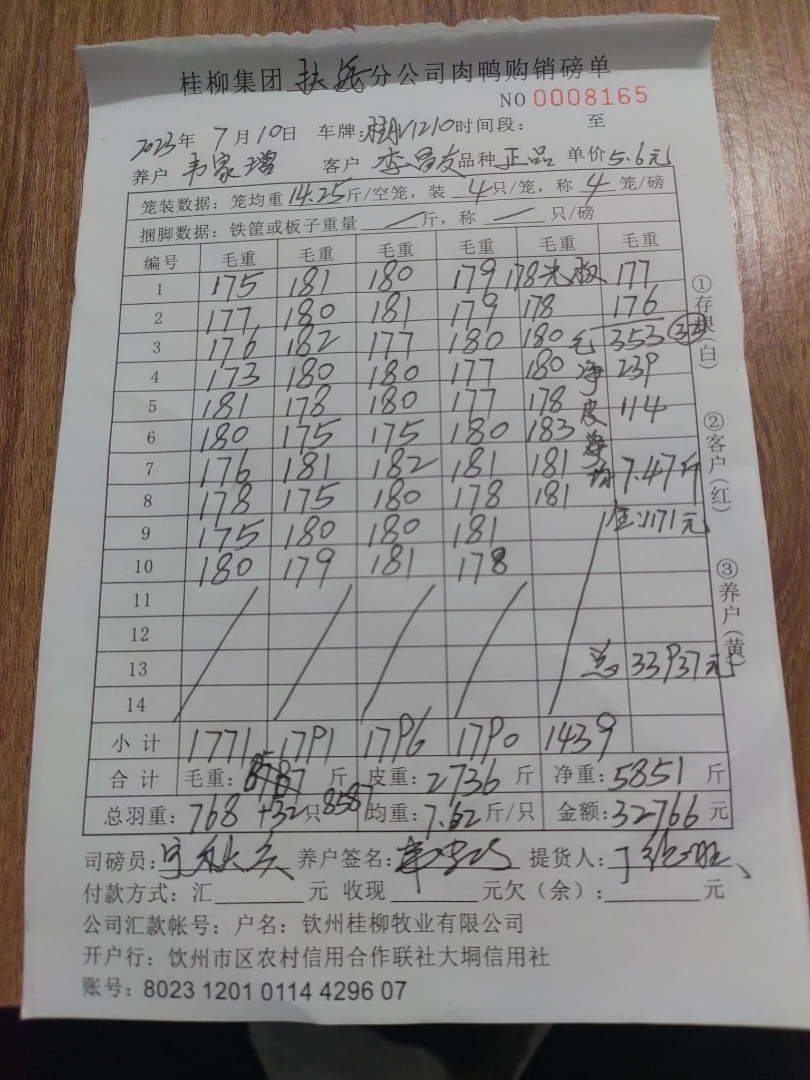 桂柳集团扶绥分公司肉鸭购销磅单
NO 0008165
2023年 7月10日 车牌: 1210 时间段: 至
养户 韦家增 客户 李昌友 品种 正品 单价 5.6元
笼装数据: 笼均重 14.25 斤/空笼, 装 4 只/笼, 称 4 笼/磅
捆脚数据: 铁筐或板子重量 / 斤, 称 — 只/磅
编号 毛重 毛重 毛重 毛重 毛重 毛重
1 175 181 180 179 178 光板 177
2 177 180 181 179 178 176
3 176 182 177 180 180 毛 353 (32)
4 173 180 180 177 180 净 239
5 181 178 180 177 178 皮 114
6 180 175 175 180 183
7 176 181 182 181 181 均 7.47斤
8 178 175 180 178 181 1171元
9 175 180 180 181
10 180 179 181 178
11
12
13 总 33937元
14
小计 1771 1791 1796 1790 1439
合计 毛重: 8587 斤 皮重: 2736 斤 净重: 5851 斤
总羽重: 768 +32只 均重: 7.62 斤/只 金额: 32766 元
司磅员: 养户签名: 提货人:
付款方式: 汇 元 收现 元欠(余): 元
公司汇款帐号: 户名: 钦州桂柳牧业有限公司
开户行: 饮州市区农村信用合作联社大垌信用社
账号: 8023 1201 0114 4296 07
①存根(白)
②客户(红)
③养户(黄)